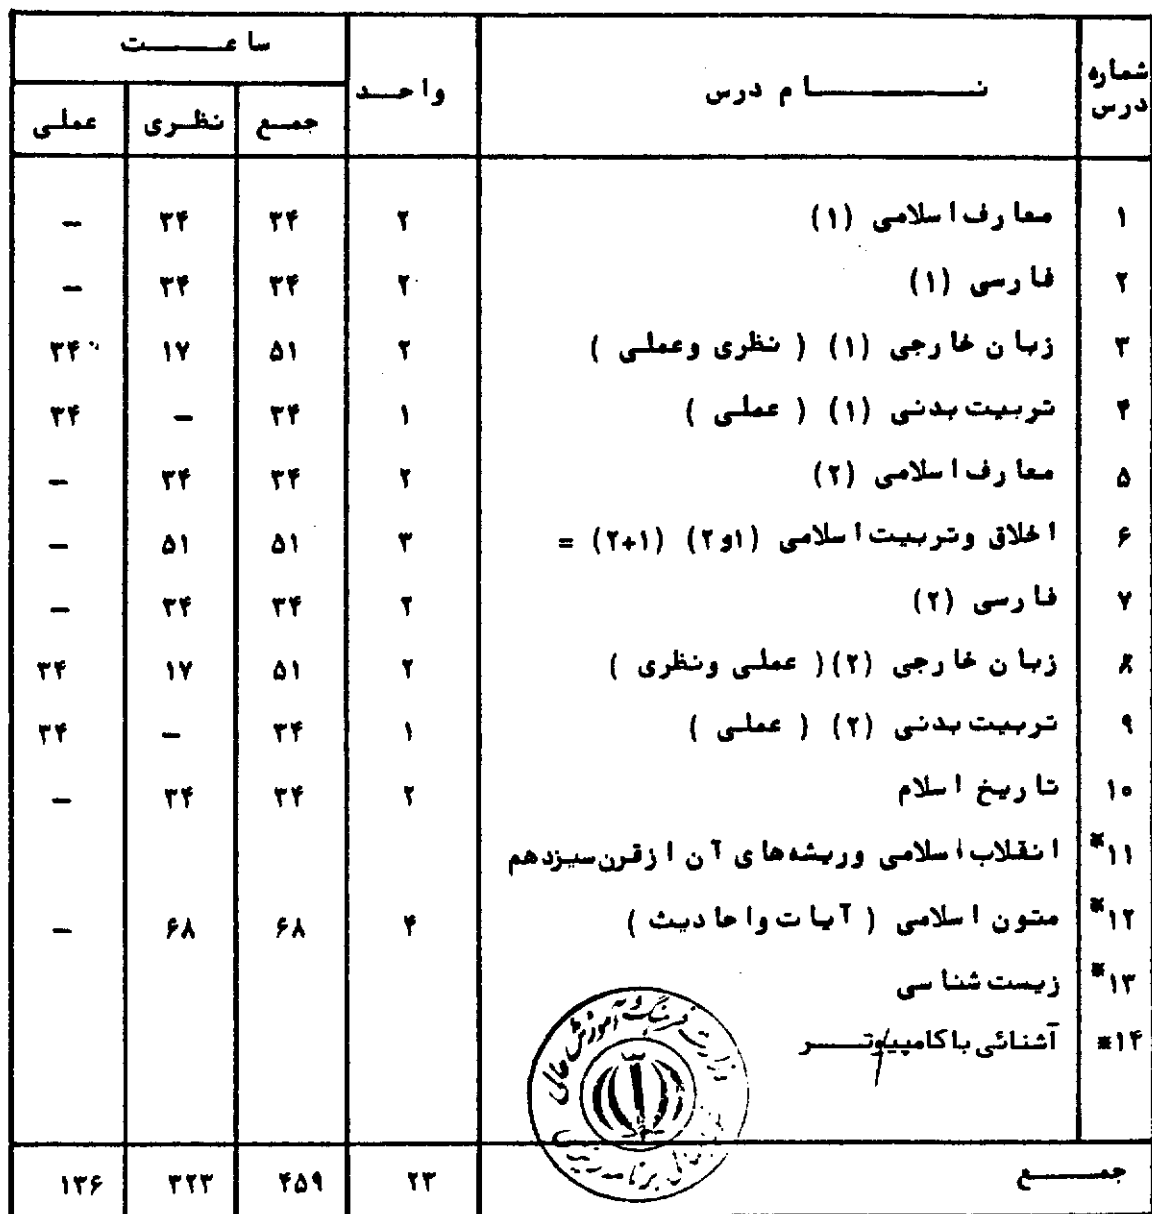 شماره درس نام درس واحد ساعت
جمع نظری عملی
۱ معارف اسلامی (۱) ۲ ۳۴ ۳۴ –
۲ فارسی (۱) ۲ ۳۴ ۳۴ –
۳ زبان خارجی (۱) ( نظری وعملی ) ۲ ۵۱ ۱۷ ۳۴
۴ تربیت بدنی (۱) ( عملی ) ۱ ۳۴ – ۳۴
۵ معارف اسلامی (۲) ۲ ۳۴ ۳۴ –
۶ اخلاق وتربیت اسلامی (۱و۲) (۱+۲) = ۳ ۵۱ ۵۱ –
۷ فارسی (۲) ۲ ۳۴ ۳۴ –
۸ زبان خارجی (۲)( عملی ونظری ) ۲ ۵۱ ۱۷ ۳۴
۹ تربیت بدنی (۲) ( عملی ) ۱ ۳۴ – ۳۴
۱۰ تاریخ اسلام ۲ ۳۴ ۳۴ –
*۱۱ انقلاب اسلامی وریشه‌های آن ازقرن سیزدهم
*۱۲ متون اسلامی ( آیات واحادیث ) ۴ ۶۸ ۶۸ –
*۱۳ زیست شناسی
*۱۴ آشنائی باکامپیوتر
وزارت فرهنگ و آموزش عالی
برنامه ریزی
جمع ۲۳ ۴۵۹ ۳۲۳ ۱۳۶